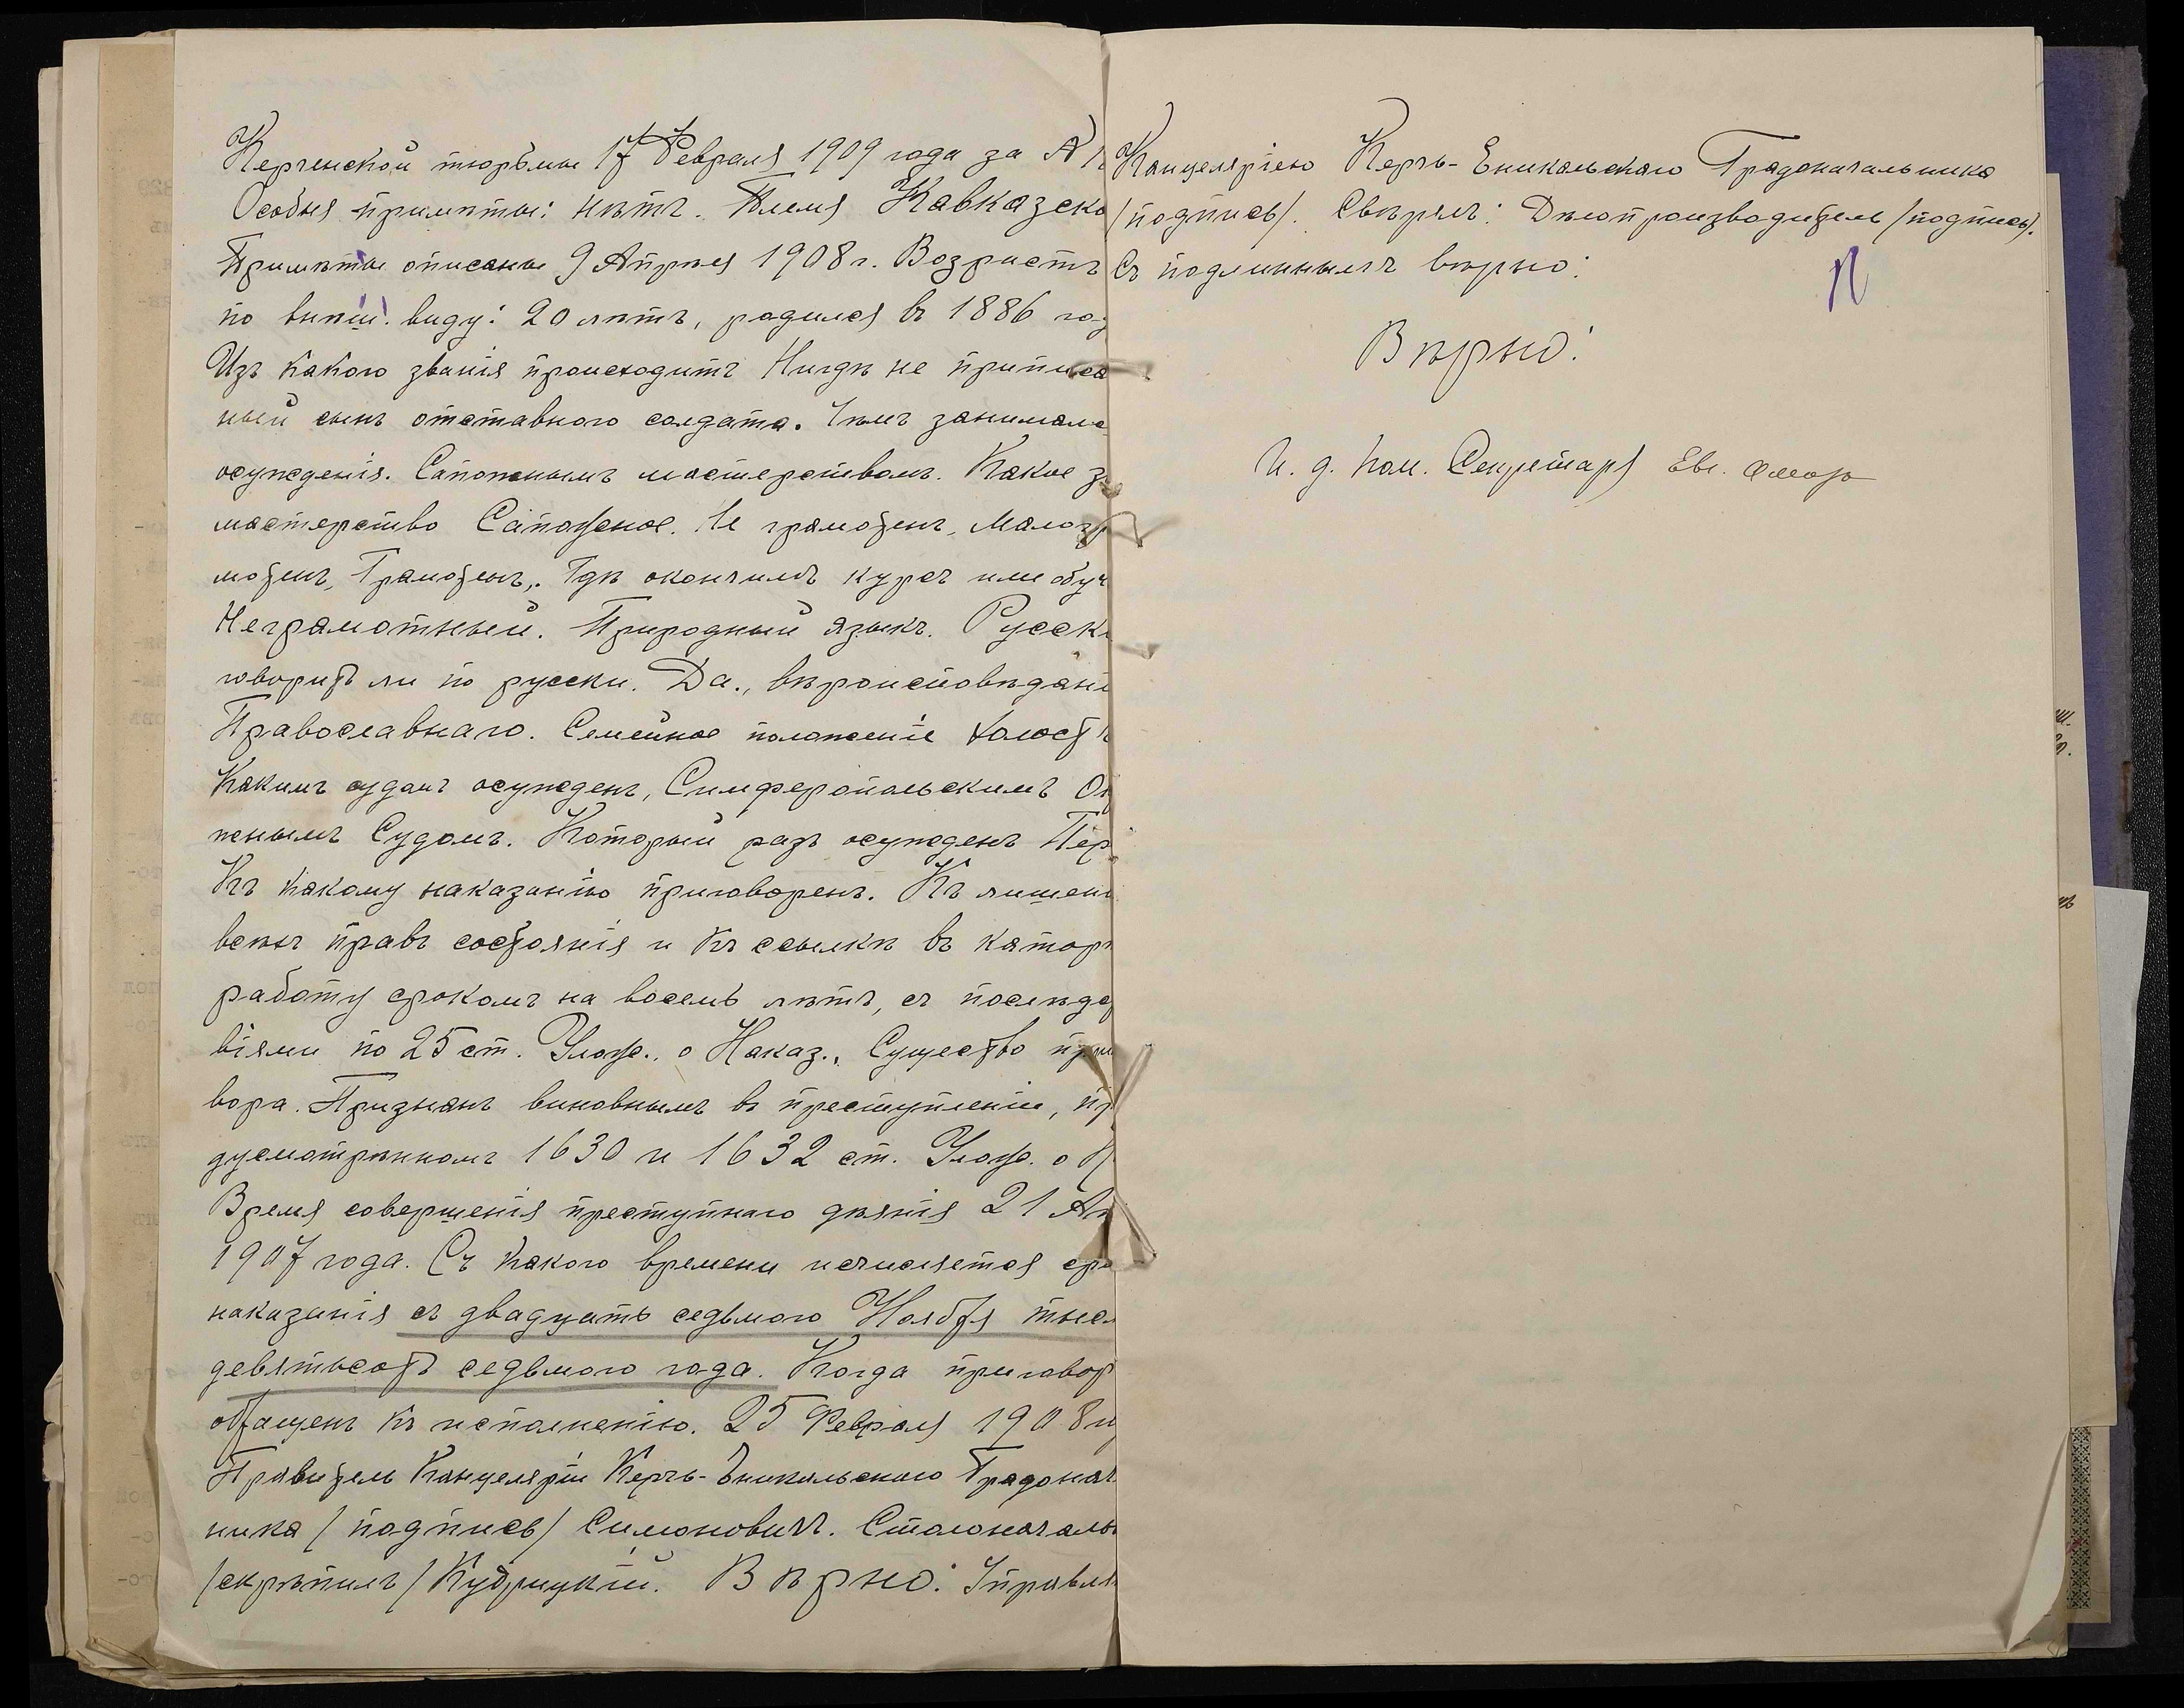 Керченской тюрьмы 17 Февраля 1909 года за №
Особыя примѣты: нѣтъ. Племя Кавказско
Примѣты описаны 9 Апрѣля 1908 г. Возрастъ
по внѣш. виду: 20 лѣтъ, родился въ 1886 год
Изъ какого званія происходитъ Нигдѣ не приписан
ный сынъ отставного солдата. Чѣмъ занимался
осужденія. Сапожнымъ мастерствомъ. Какое з
мастерство Сапожное. Не грамотенъ, Малогр
мотенъ, Грамотенъ,. Гдѣ окончилъ курсъ или обуч
Неграмотный. Природный языкъ. Русск
говоритъ ли по русски. Да., вѣроисповѣдані
Православнаго. Семейное положеніе холостъ
Какимъ судомъ осужденъ, Симферопольскимъ Ок
жнымъ Судомъ. Который разъ осужденъ Пер
Къ какому наказанію приговоренъ. Къ лишені
всѣхъ правъ состоянія и къ ссылкѣ въ каторж
работу срокомъ на восемь лѣтъ, съ послѣдс
віями по 25 ст. Улож., о Наказ., Существо при
вора. Признанъ виновнымъ въ преступленіи, пр
дусмотрѣнномъ 1630 и 1632 ст. Улож. о Н
Время совершенія преступнаго дѣянія 21 Ап
1907 года. Съ какого времени исчисляется сро
наказанія съ двадцать седьмого Ноября тыс
девятьсотъ седьмого года. Когда приговор
обращенъ къ исполненію. 25 Февраля 1908
Правитель Канцеляріи Керчь-Еникальскаго Градонач
ника /подпись/ Симоновичъ. Столоначаль
/скрѣпилъ/ Кудрицкій. Вѣрно: Управля
Канцеляріею Керчь-Еникальскаго Градоначальника
/подпись/. Свѣрялъ: Дѣлопроизводитель /подпись/.
Съ подлиннымъ вѣрно:
Вѣрно:
И. д. Пом. Секретаря Евг.